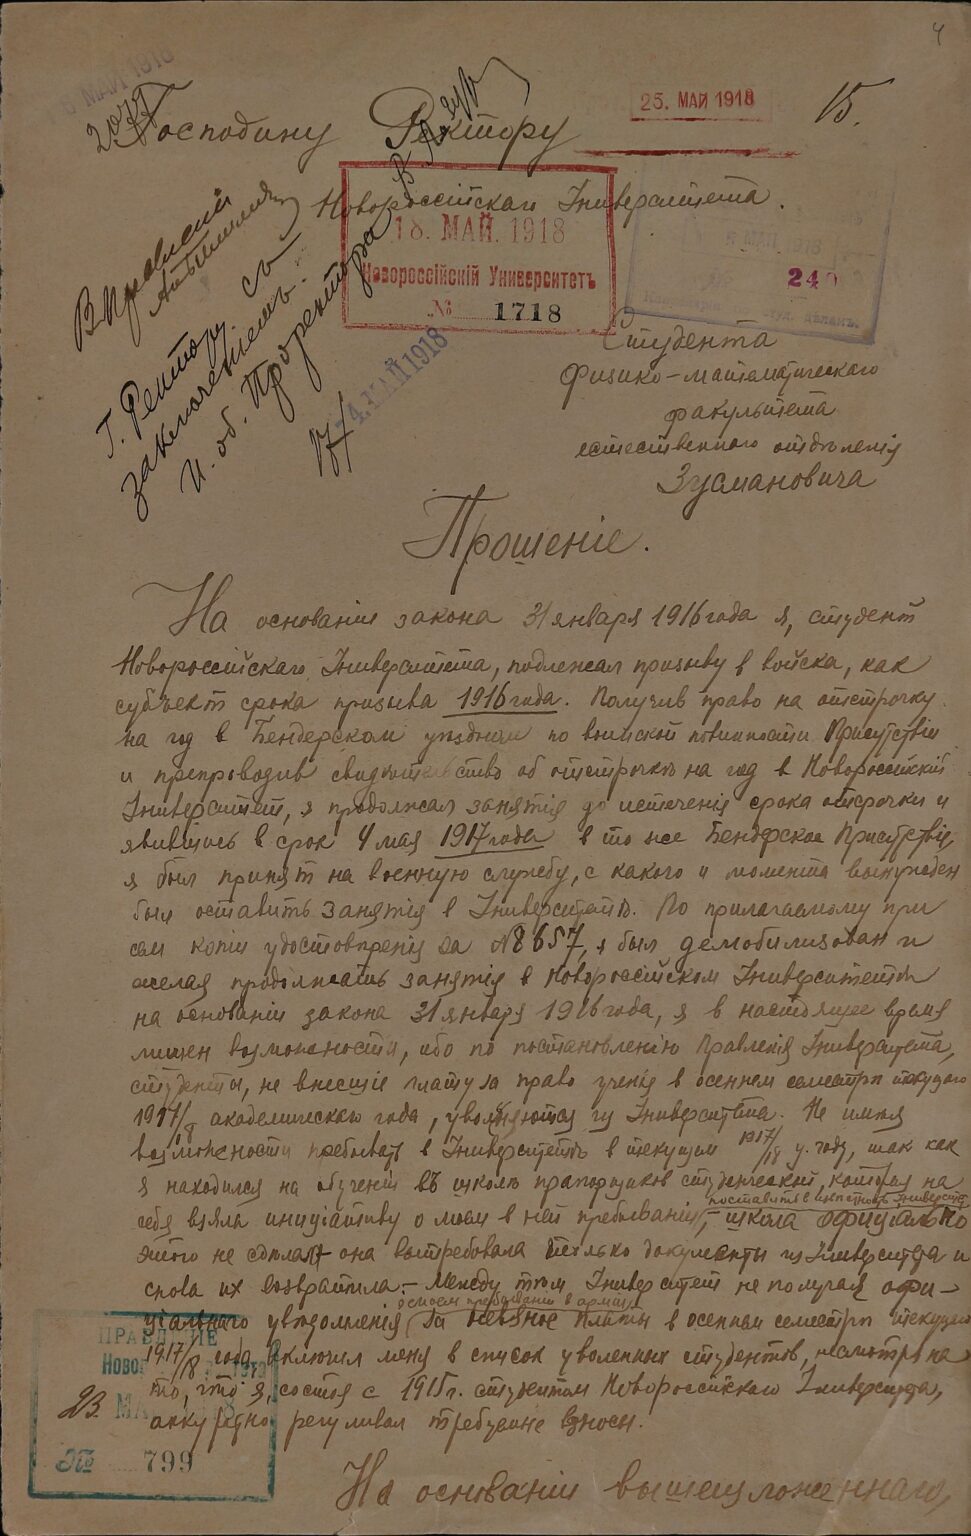 4
6 МАЙ 1918
25. МАЙ 1918
15.
2079
Господину Ректору
Новороссійскаго Университета.
18. МАЙ. 1918
Новороссійскій Университетъ
№ 1718
МАЙ 1918
240
В Правленіи
Г. Ректору съ
заключеніемъ.
И. об. Проректора
17/
4. МАЙ 1918
Студента
физико-математическаго
факультета
естественнаго отдѣленія
Зусмановича
Прошеніе.
На основаніи закона 31 января 1916 года я, студент
Новороссійскаго Университета, подлежал призыву в войска, как
субъект срока призыва 1916 года. Получив право на отсрочку
на год в Бендерском уѣздном по воинской повинности Присутствіи
и препроводив свидѣтельство об отсрочкѣ на год в Новороссійскій
Университет, я продолжал занятія до истеченія срока отсрочки и
явившись в срок 4 мая 1917 года в то же Бендерское Присутствіе,
я был принят на военную службу, с какого и момента вынужден
был оставить занятія в Университетѣ. По прилагаемому при
сем копіи удостовѣренія за №8657, я был демобилизован и
желая продолжать занятія в Новороссійском Университетѣ
на основаніи закона 31 января 1916 года, я в настоящее время
лишен возможности, ибо по постановленію Правленія Университета,
студенты, не внесшіе плату за право ученія в осеннем семестрѣ текущаго
1917/18 академическаго года, увольняются из Университета. Не имѣя
возможности пребывать в Университетѣ в текущем 1917/18 у. году, так как
я находился на обученіи въ школѣ прапорщиков студенческой, которая на
себя взяла иниціативу о моем в ней пребываніи поставить в извѣстность Университет, - школа офиціально
этого не сдѣлала она вытребовала только документы из Университета и
снова их возвратила. - Между тѣм Университет не получая офи-
ціальнаго увѣдомленія о моем пребываніи в арміи за невзнос платы в осеннем семестрѣ текущаго
1917/18 года, включил меня в список уволенных студентов, несмотря на
то, что я, состоя с 1915 г. студентом Новороссійскаго Университета,
аккуратно регуливал требуемые взносы.
ПРАВЛЕНІЕ
НОВОР
23. МА
№ 799
На основаніи вышеизложеннаго,